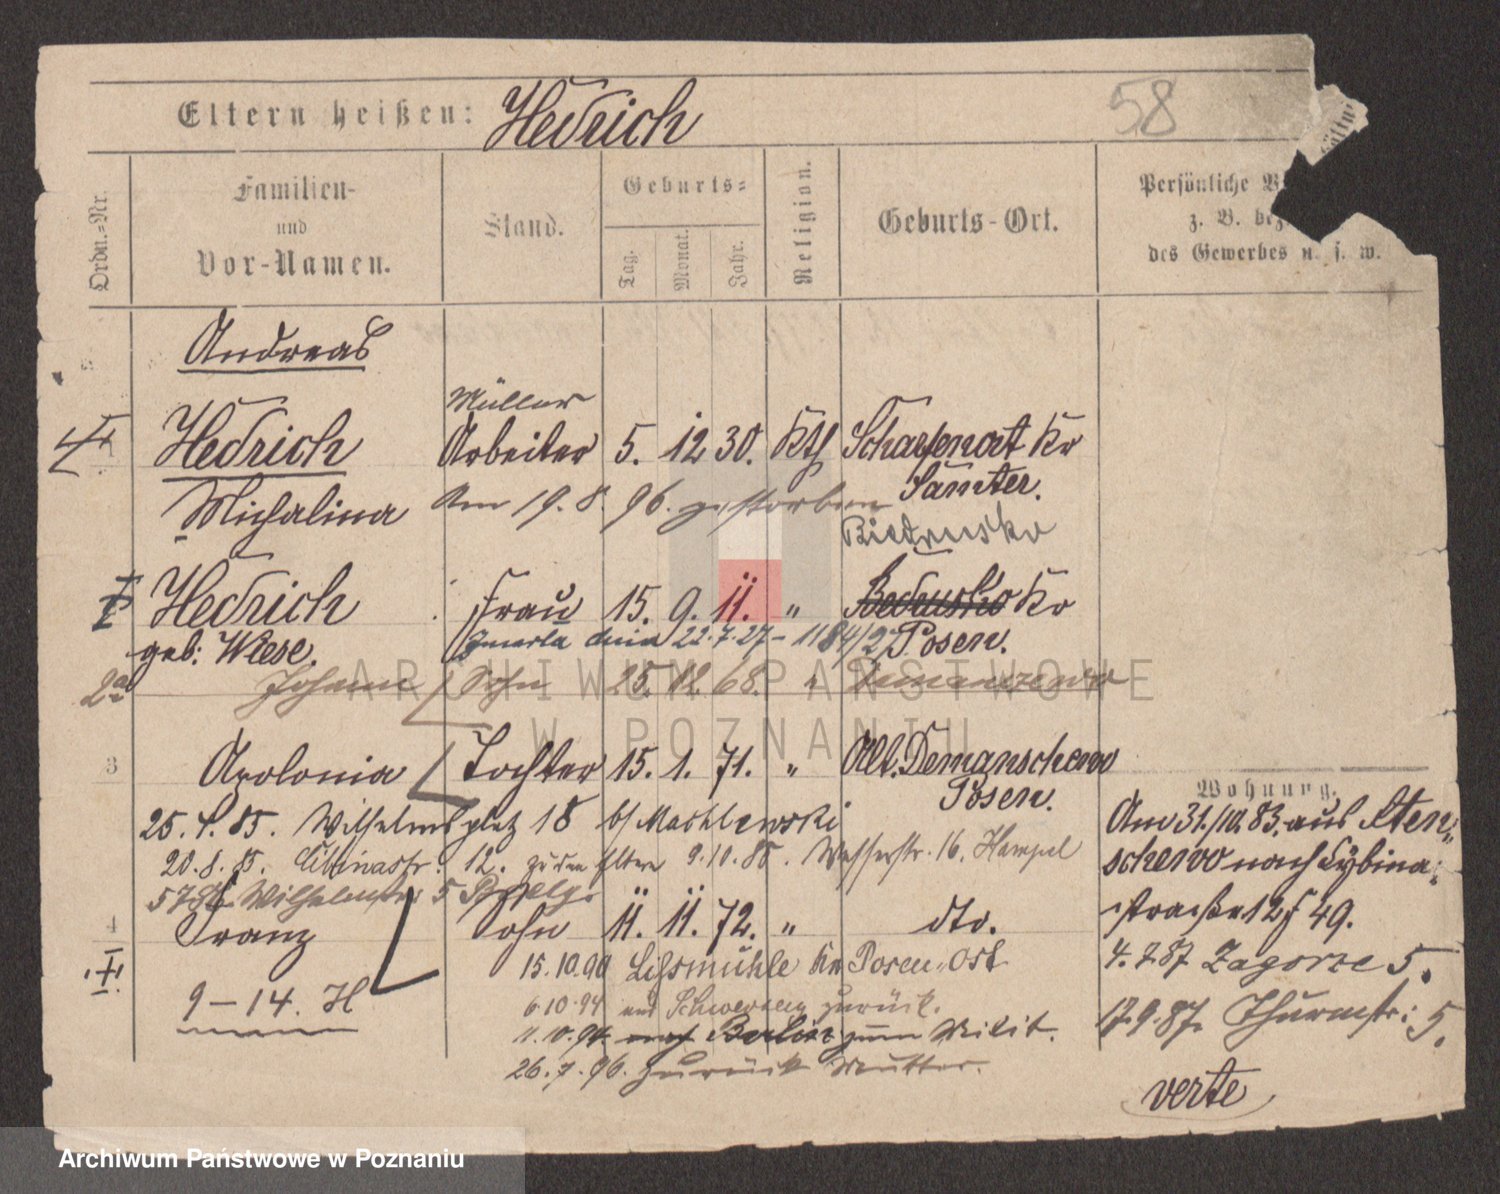 Eltern heißen: Hedrich
58
Ordn.-Nr.
Familien-
und
Vor-Namen.
Stand.
Geburts=
Tag.
Monat.
Jahr.
Religion.
Geburts-Ort.
Persönliche
z. B. bez
des Gewerbes u. s. w.
Andreas
Müller
Hedrich Arbeiter 5. 12 30. Kth Scharfenort Kr
Samter.
Michalina Am 19. 8. 96. gestorben
Biedrusko
Hedrich Frau 15. 9. 11. " Bedrusko Kr
geb: Wiese. Zmarła dnia 22.7.27 - 1184/27 Posen.
2a Johann Sohn 25. 12. 68. "
3 Apolonia Tochter 15. 1. 71. " Alt. Demanschewo
Posen.
25. 4. 85. Wilhelmsplatz 18 b/ Machlewski
20. 8. 85. 12. zu den Eltern 9.10.86. Wasserstr. 16. Hempel
Wilhelmstr 5
4 Franz Sohn 11. 11. 72. " dto.
15.10.90 Kr Posen-Ost
9-14. H
6.10.94 aus Schwersenz zurück.
11.10.94 nach Berlin zum Milit.
26.7.96. zurück Mutter.
Wohnung.
Am 31./10. 83. aus Aten=
schewo nach Cybina=
straße 12 f 49.
4. 7 87 Zagorze 5.
17.9.87. Thurmstr: 5.
verte
ARCHIWUM PAŃSTWOWE
W POZNANIU
Archiwum Państwowe w Poznaniu